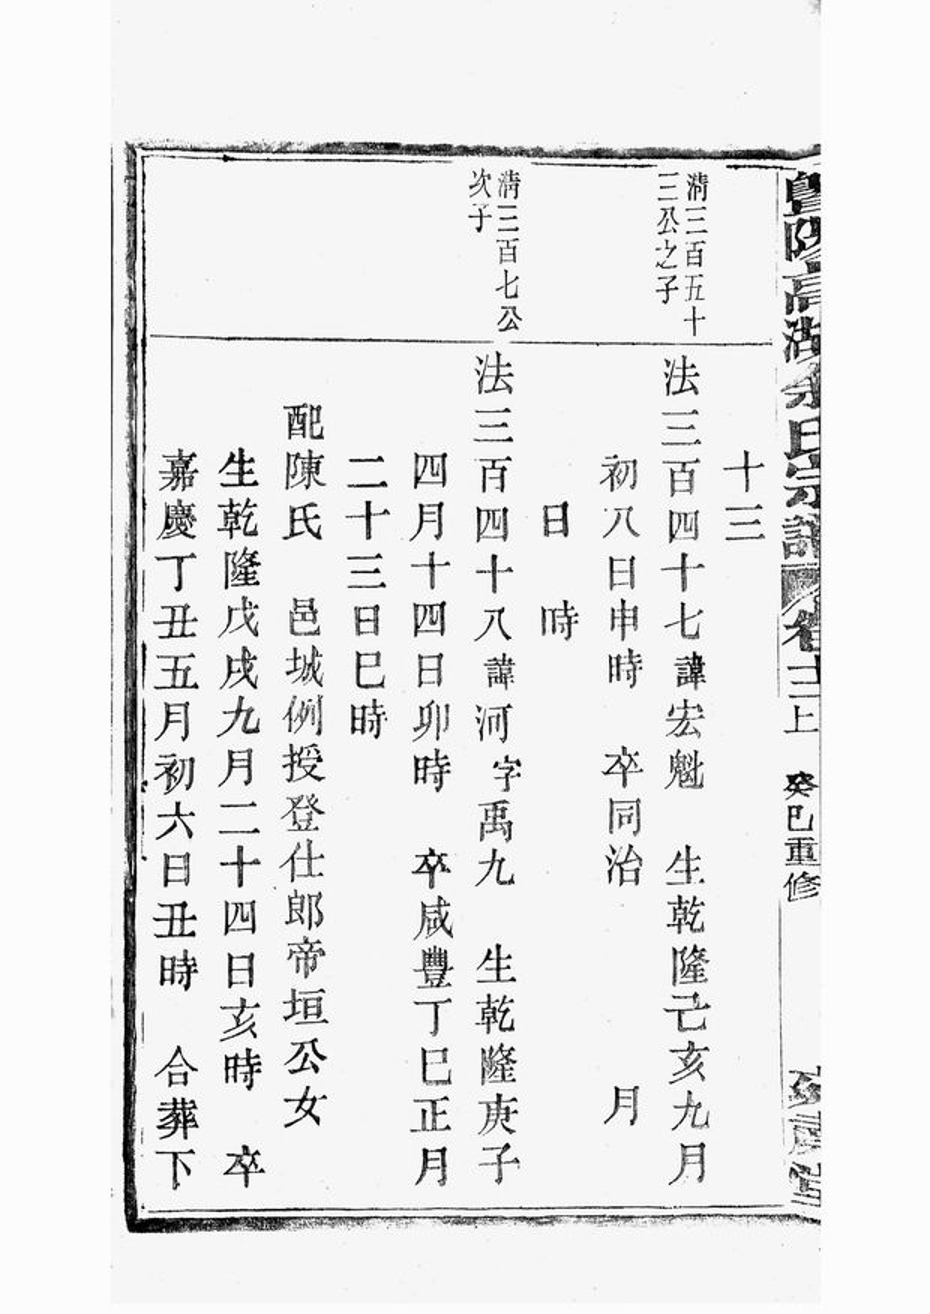 暨陽高湖余氏宗譜 卷十二上 癸巳重修
十三
清三百五十
三公之子
法三百四十七諱宏魁 生乾隆己亥九月
初八日申時 卒同治 月
日 時
清三百七公
次子
法三百四十八諱河字禹九 生乾隆庚子
四月十四日卯時 卒咸豐丁巳正月
二十三日巳時
配陳氏 邑城例授登仕郎帝垣公女
生乾隆戊戌九月二十四日亥時 卒
嘉慶丁丑五月初六日丑時 合葬下